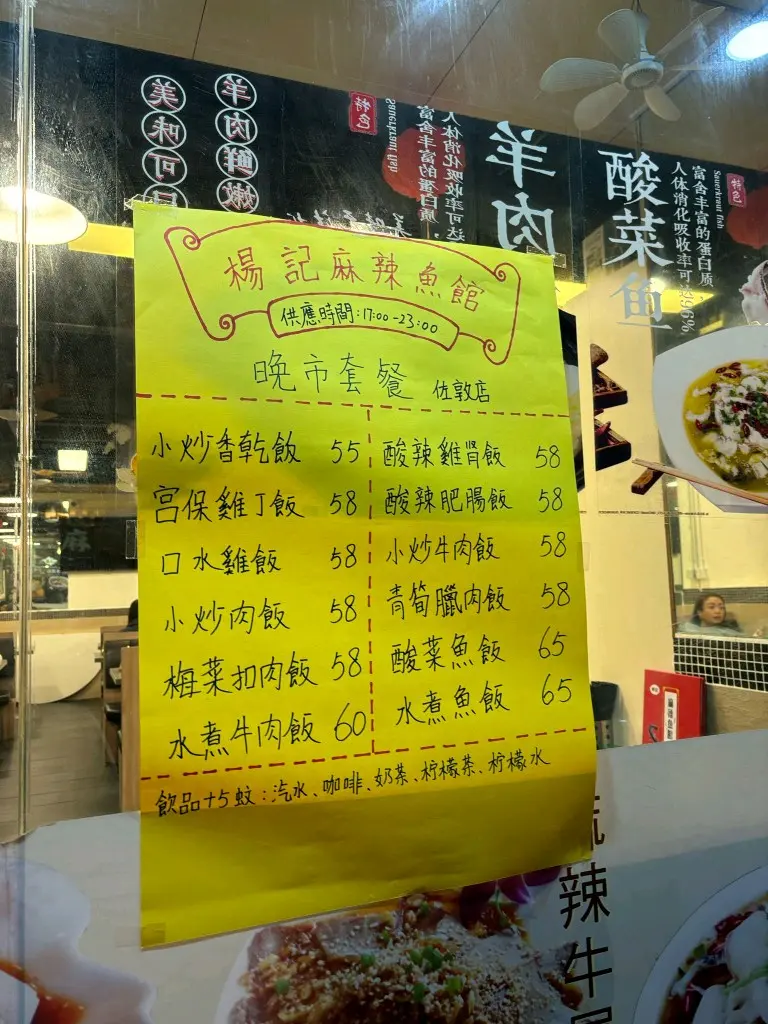 美味可
羊肉鲜嫩
特色
Sauerkraut fish
人体消化吸收率可达
富含丰富的蛋白质，
羊肉
酸菜鱼
Sauerkraut fish
特色
富含丰富的蛋白质
人体消化吸收率可达96%
楊記麻辣魚館
供應時間：17:00-23:00
晚市套餐 佐敦店
小炒香乾飯 55
宮保雞丁飯 58
口水雞飯 58
小炒肉飯 58
梅菜扣肉飯 58
水煮牛肉飯 60
酸辣雞腎飯 58
酸辣肥腸飯 58
小炒牛肉飯 58
青筍臘肉飯 58
酸菜魚飯 65
水煮魚飯 65
飲品+5蚊：汽水、咖啡、奶茶、柠檬茶、柠檬水
辣牛